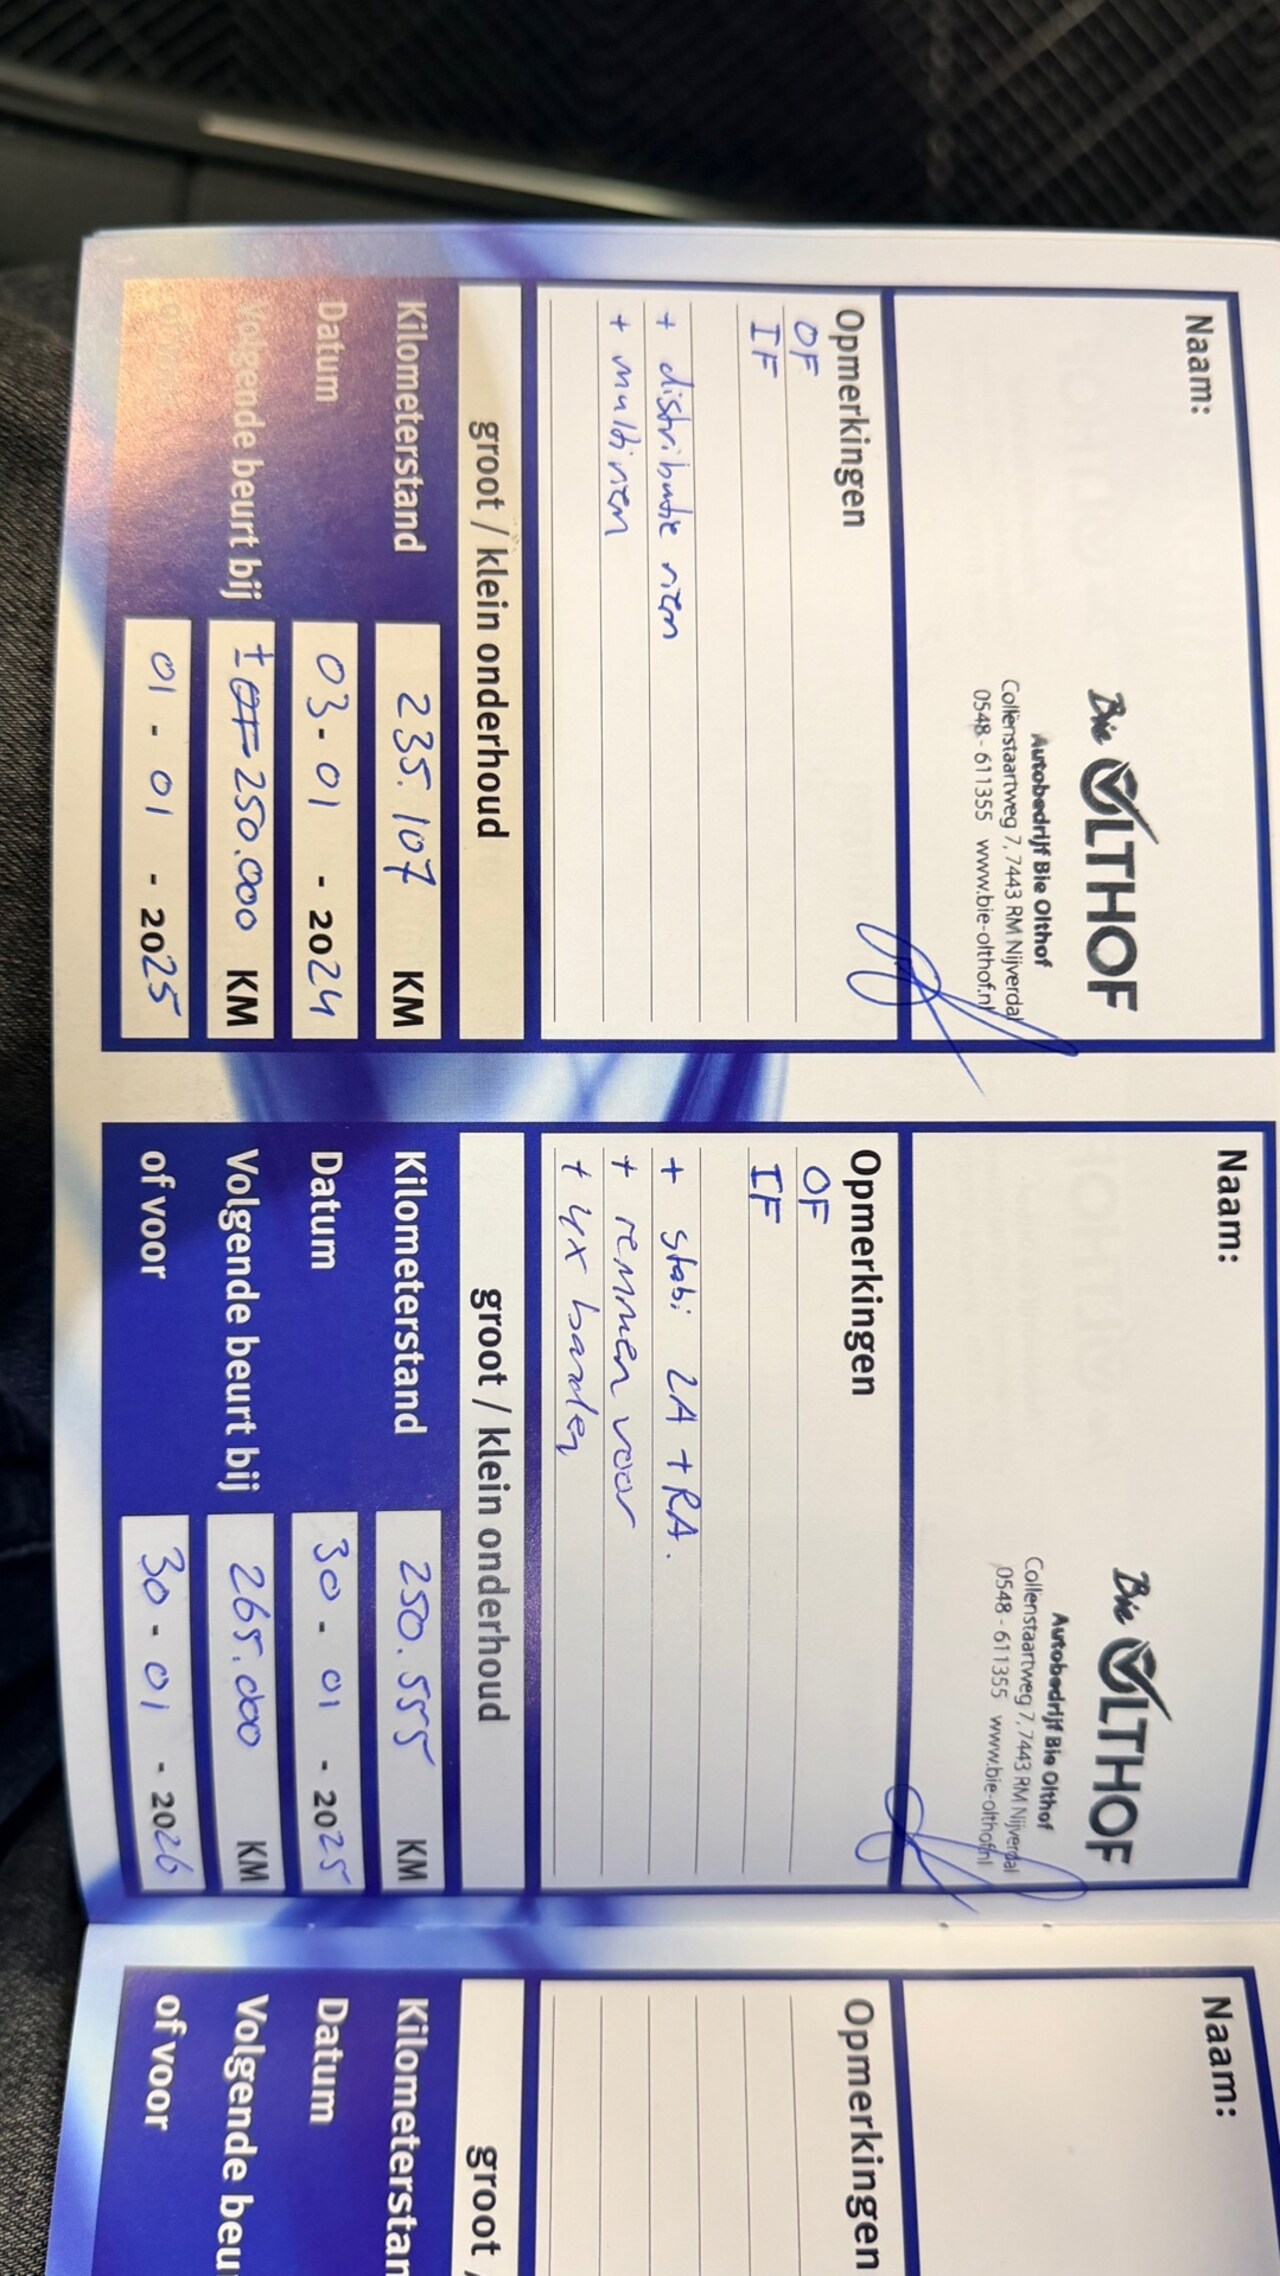 Naam:
Bie OLTHOF
Autobedrijf Bie Olthof
Collenstaartweg 7, 7443 RM Nijverdal
0548 - 611355 www.bie-olthof.nl
Opmerkingen
OF
IF
+ distributie riem
+ multiriem
groot / klein onderhoud
Kilometerstand 235.107 KM
Datum 03-01-2024
Volgende beurt bij ± 250.000 KM
of voor 01-01-2025
Naam:
Bie OLTHOF
Autobedrijf Bie Olthof
Collenstaartweg 7, 7443 RM Nijverdal
0548 - 611355 www.bie-olthof.nl
Opmerkingen
OF
IF
+ stabi LA + RA.
+ remmen voor
+ 4x banden
groot / klein onderhoud
Kilometerstand 250.555 KM
Datum 30-01-2025
Volgende beurt bij 265.000 KM
of voor 30-01-2026
Naam:
Opmerkingen
groot /
Kilometerstan
Datum
Volgende beur
of voor